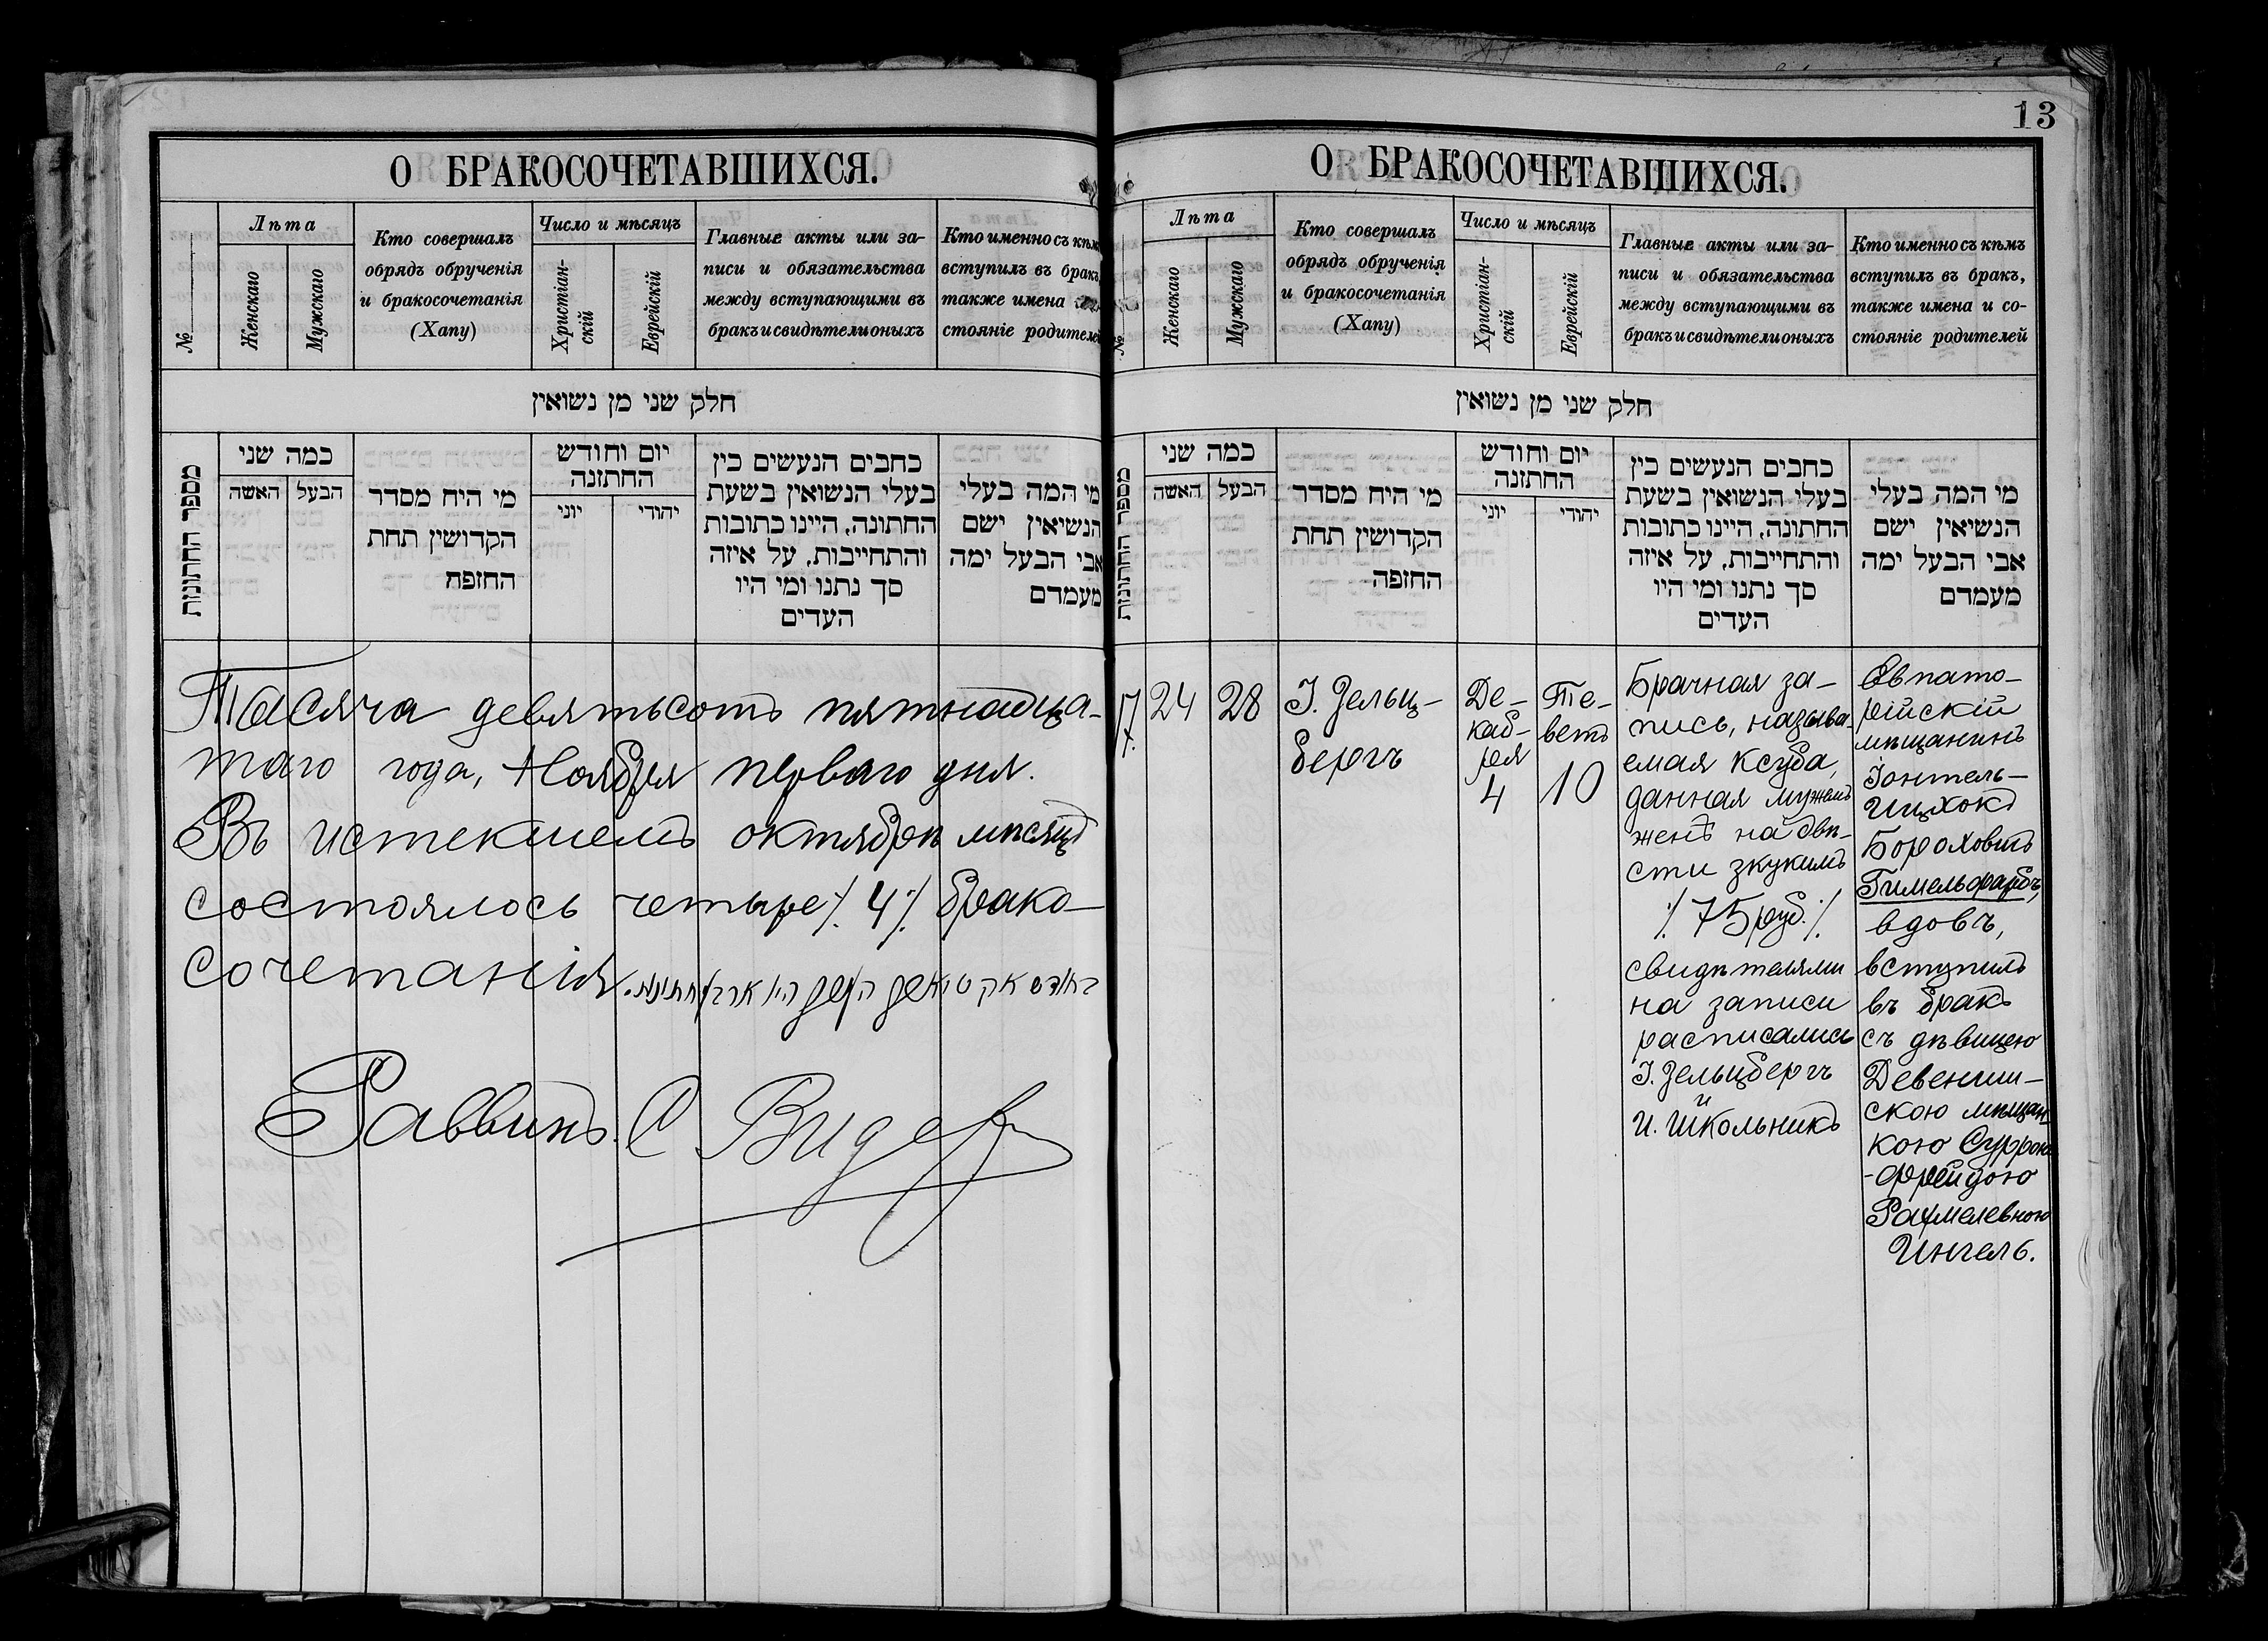 О БРАКОСОЧЕТАВШИХСЯ.
№
Лѣта
Женскаго
Мужскаго
Кто совершалъ
обрядъ обрученія
и бракосочетанія
(Хапу)
Число и мѣсяцъ
Христіан-
скій
Еврейскій
Главные акты или за-
писи и обязательства
между вступающими въ
бракъ и свидѣтели оныхъ
Кто именно съ кѣмъ
вступилъ въ бракъ,
также имена
стояніе родителей
חלק שני מן נשואין
מספר החתונות
כמה שני
האשה
הבעל
מי היח מסדר
הקדושין תחת
החזפח
יום וחודש
החתזנה
יוני
יהודי
כחבים הנעשים כין
בעלי הנשואין בשעת
החתונה, היינו כתובות
והתחייבות, על איזה
סך נתנו ומי היו
העדים
מי המה בעלי
הנשיאין ישם
אבי הבעל ימה
מעמדם
Тысяча девятьсотъ пятнадца-
таго года, Ноября перваго дня.
Въ истекшемъ октябрѣ мѣсяцѣ
состоялось четыре ⁒ 4 ⁒ брако-
сочетанія.
Раввинъ. С Видер
13
О БРАКОСОЧЕТАВШИХСЯ.
№
Лѣта
Женскаго
Мужскаго
Кто совершалъ
обрядъ обрученія
и бракосочетанія
(Хапу)
Число и мѣсяцъ
Христіан-
скій
Еврейскій
Главные акты или за-
писи и обязательства
между вступающими въ
бракъ и свидѣтели оныхъ
Кто именно съ кѣмъ
вступилъ въ бракъ,
также имена и со-
стояніе родителей
חלק שני מן נשואין
מספר החתונות
כמה שני
האשה
הבעל
מי היח מסדר
הקדושין תחת
החזפה
יום וחודש
החתזנה
יוני
יהודי
כחבים הנעשים כין
בעלי הנשואין בשעת
החתונה, היינו כתובות
והתחייבות, על איזה
סך נתנו ומי היו
העדים
מי המה בעלי
הנשיאין ישם
אבי הבעל ימה
מעמדם
17.
24
28
І. Зельц-
бергъ
Де-
каб-
ря
4
Те-
ветъ
10
Брачная за-
пись, называ-
емая ксуба,
данная мужемъ
женѣ на двѣ-
сти зкукимъ
⁒ 75 руб. ⁒
свидѣтелями
на записи
расписались
І. Зельцбергъ
и
И. Школьникъ
Евпато-
рійскій
мѣщанинъ
Іонтель-
Ицхокъ
Бороховичъ
Гимельфарбъ,
вдовъ,
вступилъ
въ бракъ
съ дѣвицею
Девениш-
скою мѣщан-
кою Суррою
-Фрейдою
Рахмелевною
Ингель.